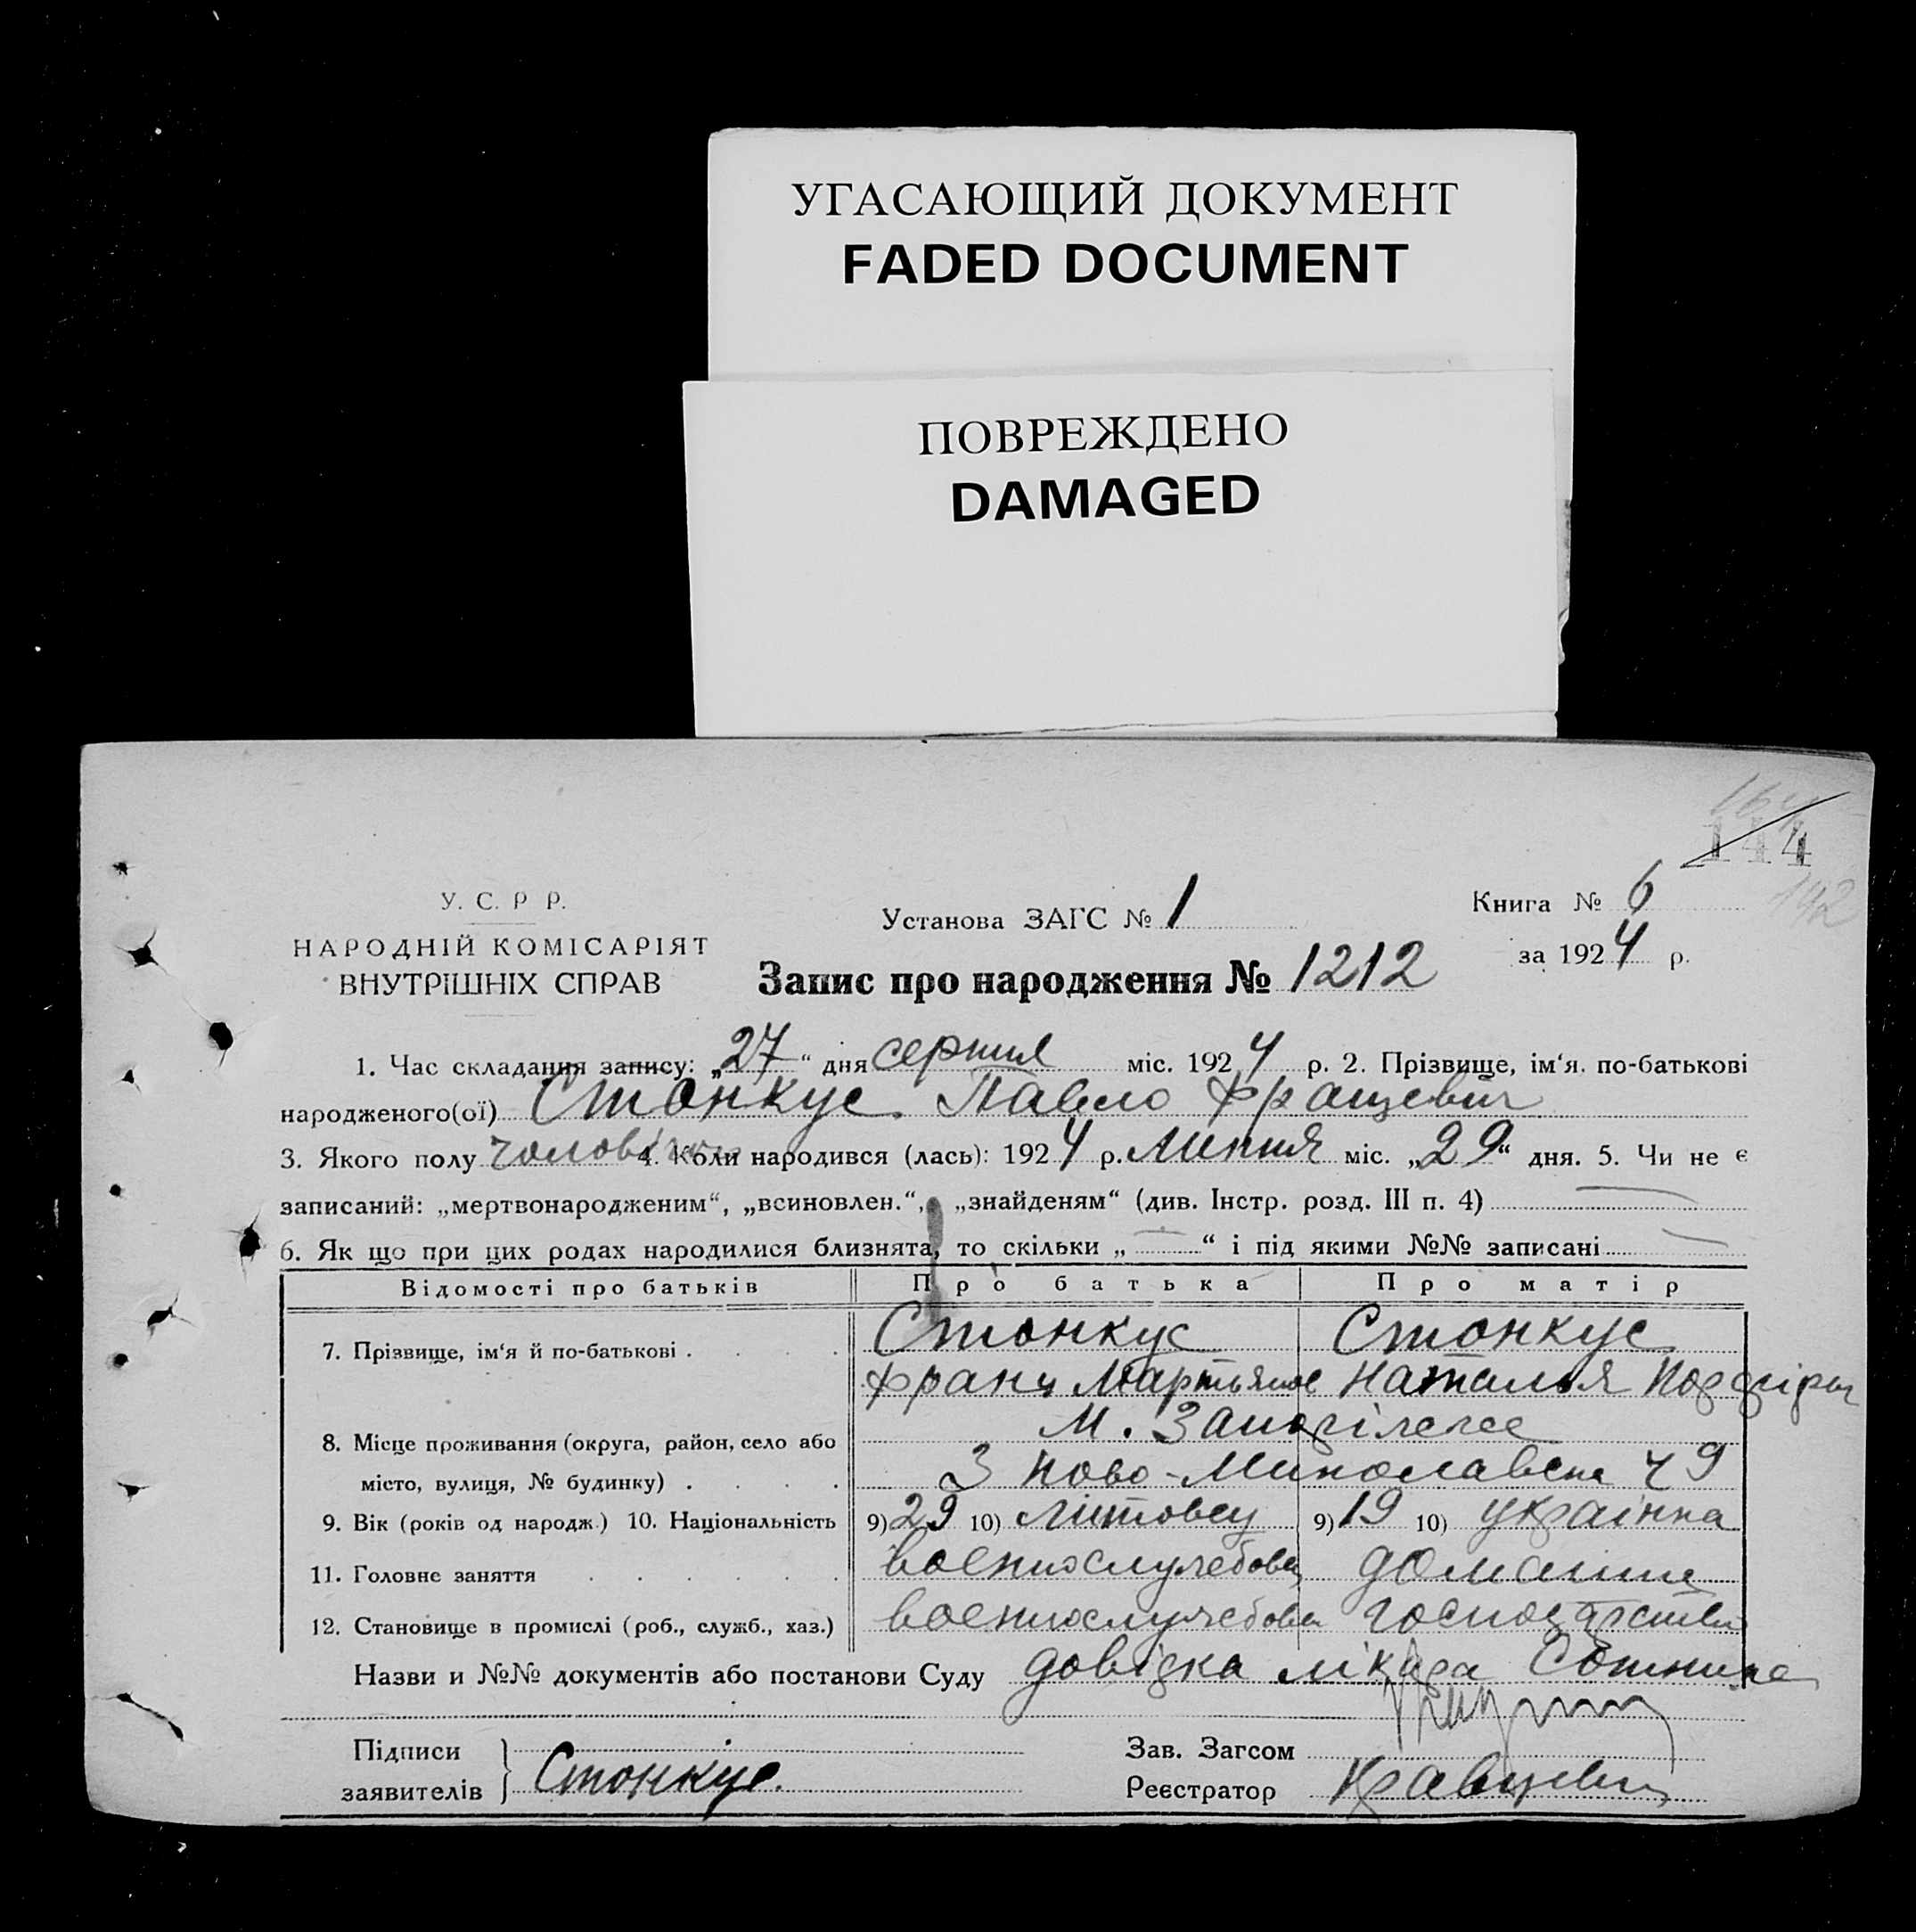 УГАСАЮЩИЙ ДОКУМЕНТ
FADED DOCUMENT
ПОВРЕЖДЕНО
DAMAGED
144
142
У. С. Р Р.
НАРОДНІЙ КОМІСАРІЯТ
ВНУТРІШНІХ СПРАВ
Установа ЗАГС № 1
Книга № 6
за 1924 р.
Запис про народження № 1212
1. Час складання запису: „27“ дня серпня міс. 1924 р. 2. Прізвище, ім‘я. по-батькові
народженого(ої) Стонкус Павло Францевич
3. Якого полу чоловічого 4. Коли народився (лась): 1924 р. Липня міс. „29“ дня. 5. Чи не є
записаний: „мертвонародженим“, „всиновлен.“, „знайденям“ (див. Інстр. розд. III п. 4)
6. Як що при цих родах народилися близнята, то скільки „ — “ і під якими №№ записані —
Відомості про батьків Про батька Про матір
7. Прізвище, ім‘я й по-батькові . Стонкус Стонкус
Франц Мартьянов Наталья
8. Місце проживання (округа, район, село або М.
місто, вулиця, № будинку) . 3 Ново- 49
9. Вік (років од народж.) 10. Національність 9) 29 10) литовец 9) 19 10) українка
11. Головне заняття военнослужбовец домашнє
12. Становище в промислі (роб., служб., хаз.) военнослужбовец господарство
Назви и №№ документів або постанови Суду довідка лікаря
Підписи
заявителів Стонкус.
Зав. Загсом
Реєстратор Кравцевич